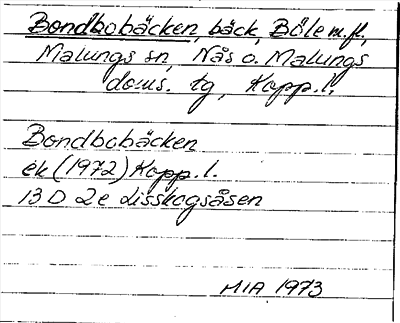 Bondbobäcken, bäck, Böle m.fl.,
Malungs sn, Nås o. Malungs
doms. tg, Kopp. l.
Bondbobäcken
ek (1972) Kopp. l.
13 D 2e Lisskogsåsen
MIA 1973